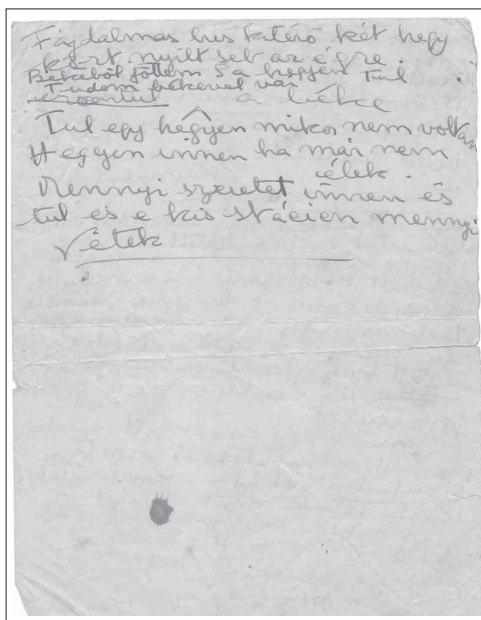 Fájdalmas hus kitérő két hegy
kört nyilt seb az égre.
Békéből jöttem S a hegyen Tul
Tudom békével vár
a béke
Tul egy hegyen mikor nem voltam
Hegyen innen ha már nem
élek.
Mennyi szeretet innen és
tul és e kis stációen mennyi
Vétek